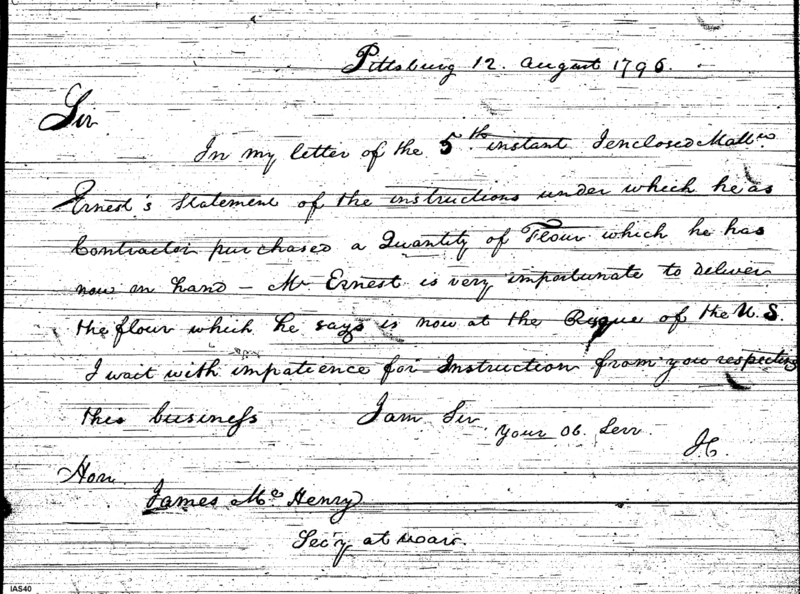 Pittsburg 12. August 1796.
Sir
In my letter of the 5th instant I enclosed Matt w.
Ernest's Statement of the instructions under which he as
Contractor purchased a Quantity of Flour which he has
now in hand – Mr Ernest is very importunate to deliver
the flour which he says is now at the Risque of the U.S.
I wait with impatience for Instruction from you respecting
this business I am Sir
your Ob. Serv.
Hon
James Mc Henry
Sec'y at War.
IAS40